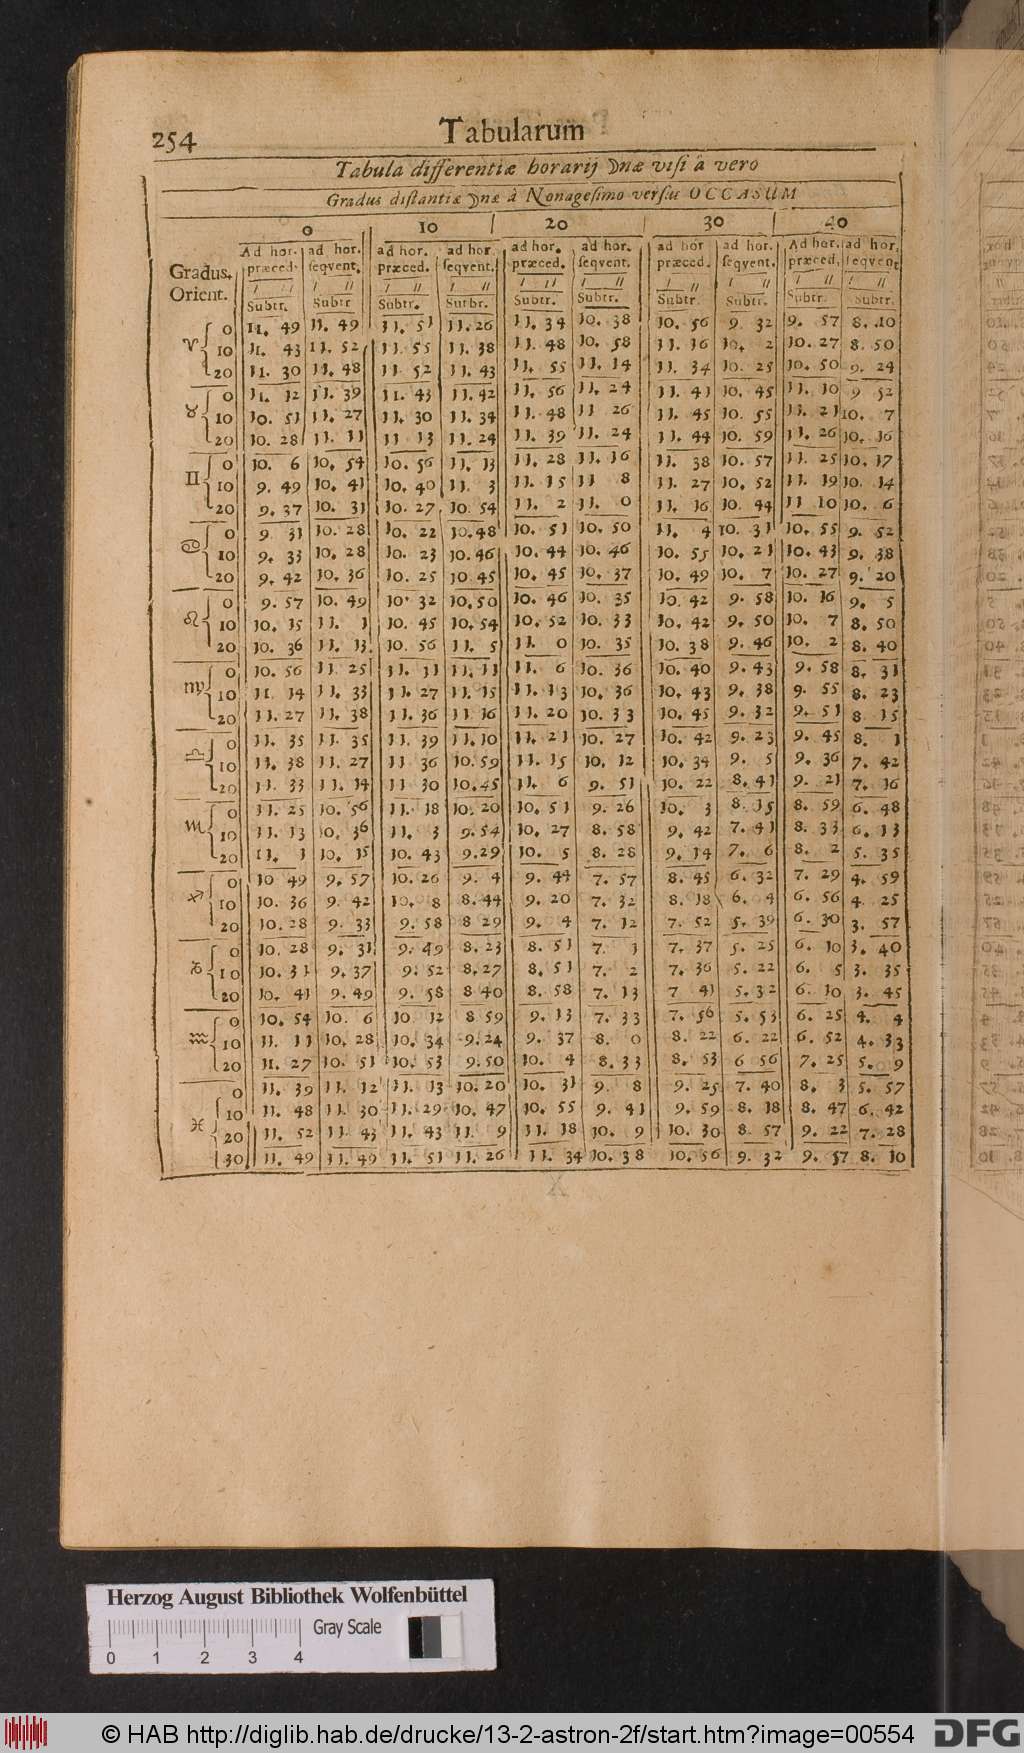 254 Tabularum
Tabula differentiæ horarij ☽næ visi à vero
Gradus distantiæ ☽næ à Nonagesimo versus OCCASUM
0 10 20 30 40
Gradus Orient. Ad hor. præced. ad hor. seqvent. ad hor. præced. ad hor. seqvent. ad hor. præced. ad hor. seqvent. ad hor præced. ad hor. seqvent. Ad hor. præced. ad hor. seqvent.
I II I II I II I II I II I II I II I II I II I II
Subtr. Subtr Subtr. Surbr. Subtr. Subtr. Subtr. Subtr. Subtr. Subtr.
♈ 0 11. 49 11. 49 11. 51 11. 26 11. 34 10. 38 10. 56 9. 32 9. 57 8. 10
10 11. 43 11. 52 11. 55 11. 38 11. 48 10. 58 11. 16 10. 2 10. 27 8. 50
20 11. 30 11. 48 11 52 11. 43 11. 55 11. 14 11. 34 10. 25 10. 50 9. 24
♉ 0 11. 12 11. 39 11. 43 11. 42 11. 56 11. 24 11. 41 10. 45 11. 10 9 52
10 10. 51 11. 27 11. 30 11. 34 11. 48 11 26 11. 45 10. 55 11. 21 10. 7
20 10. 28 11. 11 11 13 11. 24 11. 39 11. 24 11. 44 10. 59 11. 26 10. 16
♊ 0 10. 6 10. 54 10. 56 11. 13 11. 28 11. 16 11. 38 10. 57 11. 25 10. 17
10 9. 49 10. 41 10. 40 11. 3 11. 15 11 8 11. 27 10. 52 11. 19 10. 14
20 9. 37 10. 31 10. 27 10. 54 11. 2 11. 0 11. 16 10. 44 11 10 10. 6
♋ 0 9 31 10. 28 10. 22 10. 48 10. 51 10. 50 11. 4 10. 31 10. 55 9. 52
10 9. 33 10. 28 10. 23 10. 46 10. 44 10. 46 10. 55 10. 21 10. 43 9. 38
20 9. 42 10. 36 10. 25 10 45 10. 45 10. 37 10. 49 10. 7 10. 27 9. 20
♌ 0 9. 57 10. 49 10. 32 10. 50 10. 46 10. 35 10. 42 9. 58 10. 16 9. 5
10 10. 15 11. 1 10. 45 10. 54 10. 52 10. 33 10. 42 9. 50 10. 7 8. 50
20 10. 36 11. 13 10. 56 11. 5 11. 0 10. 35 10. 38 9. 46 10. 2 8. 40
♍ 0 10. 56 11. 25 11. 11 11. 11 11. 6 10. 36 10. 40 9. 43 9. 58 8. 31
10 11. 14 11. 33 11. 27 11. 15 11. 13 10. 36 10. 43 9. 38 9. 55 8. 23
20 11. 27 11. 38 11. 36 11 16 11. 20 10. 33 10. 45 9. 32 9. 51 8 15
♎ 0 11. 35 11. 35 11. 39 11. 10 11. 21 10. 27 10. 42 9. 23 9. 45 8. 1
10 11. 38 11. 27 11 36 10. 59 11. 15 10. 12 10. 34 9. 5 9. 36 7. 42
20 11. 33 11. 14 11 30 10. 45 11. 6 9. 51 10. 22 8. 41 9. 21 7. 16
♏ 0 11. 25 10. 56 11. 18 10. 20 10. 51 9. 26 10. 3 8. 15 8. 59 6. 48
10 11. 13 10. 36 11. 3 9. 54 10. 27 8. 58 9. 42 7. 41 8. 33 6. 13
20 11. 1 10. 15 10. 43 9. 29 10. 5 8. 28 9. 14 7. 6 8. 2 5. 35
♐ 0 10 49 9. 57 10. 26 9. 4 9. 44 7. 57 8. 45 6. 32 7. 29 4. 59
10 10. 36 9. 42 10. 8 8. 44 9. 20 7. 32 8. 18 6. 4 6. 56 4 25
20 10. 28 9. 33 9. 58 8 29 9. 4 7. 12 7. 52 5. 39 6. 30 3. 57
♑ 0 10. 28 9. 31 9. 49 8. 23 8. 51 7. 1 7. 37 5. 25 6. 10 3. 40
10 10. 31 9. 37 9. 52 8. 27 8. 51 7. 2 7. 36 5. 22 6. 5 3. 35
20 10. 41 9. 49 9. 58 8 40 8. 58 7. 13 7 41 5. 32 6. 10 3. 45
♒ 0 10. 54 10. 6 10 12 8 59 9. 13 7. 33 7. 56 5. 53 6. 25 4. 4
10 11. 11 10. 28 10. 34 9. 24 9. 37 8. 0 8. 22 6. 22 6. 52 4. 33
20 11. 27 10. 51 10. 53 9. 50 10. 4 8. 33 8. 53 6 56 7. 25 5. 9
♓ 0 11. 39 11. 12 11. 13 10. 20 10. 31 9. 8 9. 25 7. 40 8. 3 5. 57
10 11. 48 11. 30 11. 29 10. 47 10. 55 9. 41 9. 59 8. 18 8. 47 6. 42
20 11. 52 11. 43 11. 43 11. 9 11. 18 10. 9 10. 30 8. 57 9. 22 7. 28
30 11. 49 11. 49 11. 51 11. 26 11. 34 10. 38 10. 56 9. 32 9. 57 8. 10
Herzog August Bibliothek Wolfenbüttel
Gray Scale
0 1 2 3 4
© HAB http://diglib.hab.de/drucke/13-2-astron-2f/start.htm?image=00554 DFG